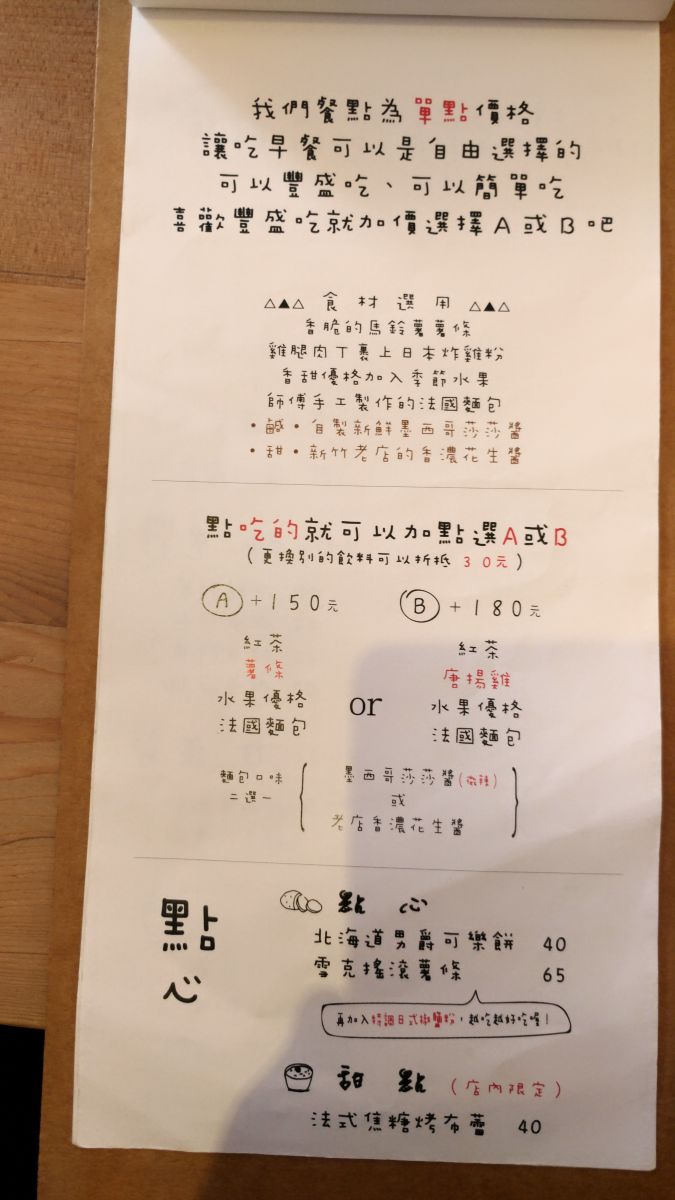 我們餐點為單點價格
讓吃早餐可以是自由選擇的
可以豐盛吃、可以簡單吃
喜歡豐盛吃就加價選擇A或B吧
△▲△ 食材選用 △▲△
香脆的馬鈴薯薯條
雞腿肉丁裹上日本炸雞粉
香甜優格加入季節水果
師傅手工製作的法國麵包
•鹹•自製新鮮墨西哥莎莎醬
•甜•新竹老店的香濃花生醬
點吃的就可以加點選A或B
(更換別的飲料可以折抵 30元)
A +150元
紅茶
薯條
水果優格
法國麵包
or
B +180元
紅茶
唐揚雞
水果優格
法國麵包
麵包口味
二選一
墨西哥莎莎醬(微辣)
或
老店香濃花生醬
點心
點心
北海道男爵可樂餅 40
雪克搖滾薯條 65
再加入特調日式椒鹽粉，越吃越好吃喔!
甜點 (店內限定)
法式焦糖烤布蕾 40